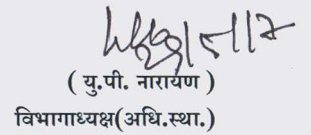 ( यु.पी. नारायण )
विभागाध्यक्ष(अधि.स्था.)